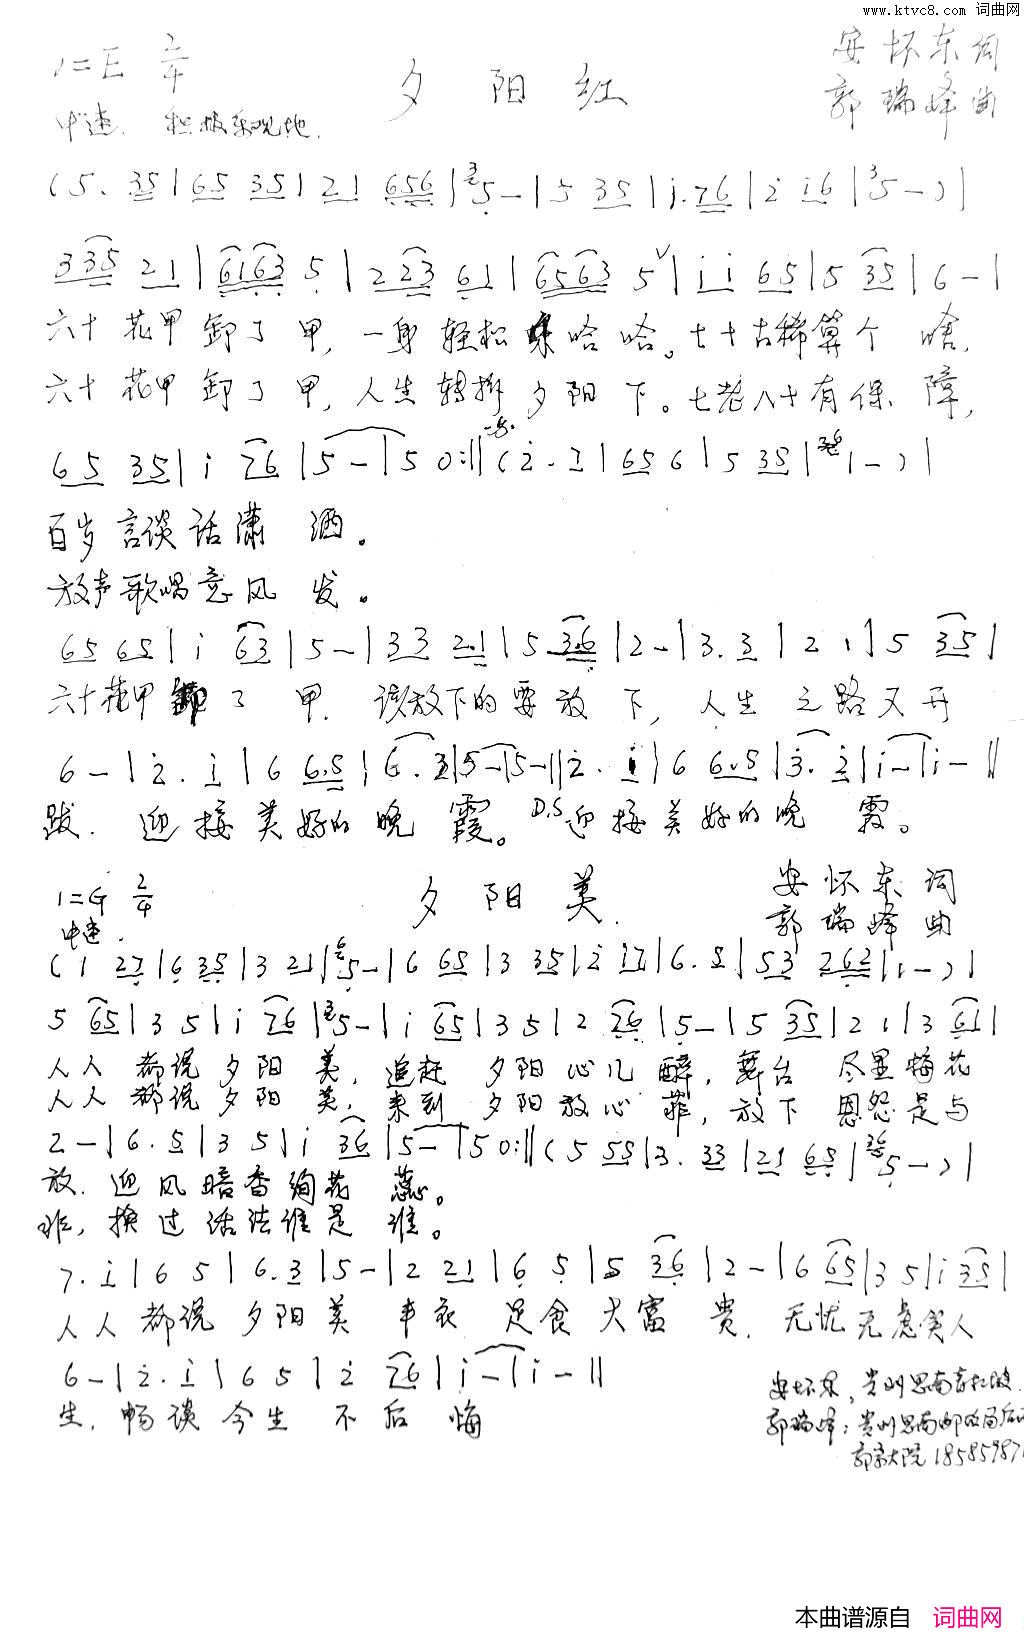 www.ktvc8.com 词曲网
1=E 2/4 夕阳红 安怀东词
中速. 积极乐观地. 郭瑞峰曲
(5. 35|65 35|21 656|5-|5 35|i.76|i i6|5-)|
335 21|6163 5|223 61|6563 5|ii 65|5 35|6-|
六十花甲卸了甲,一身轻松哈哈。七十古稀算个啥,
六十花甲卸了甲,人生转折夕阳下。七老八十有保障,
65 35|i 76|5-|5 0:||(2.1|65 6|5 35|1-)|
百岁言谈话潇洒。
放声歌唱意风发。
65 65|i 63|5-|33 2.1|5 3.6|2-|3.3|2 1|5 35|
六十花甲卸了甲.该放下的要放下,人生之路又开
6-|2.i|6 6.5|6.3|5-|5-||2.i|6 6.5|3.2|i-|i-||
跋.迎接美好的晚霞。D.S迎接美好的晚霞。
1=G 2/4 夕阳美. 安怀东词
中速. 郭瑞峰曲
(1 27|6 35|3 21|5-|6 65|3 35|2 17|6.5|53 262|1-)|
5 65|3 5|i 76|5-|i 65|3 5|2 76|5-|5 35|2 1|3 61|
人人都说夕阳美,追赶夕阳心儿醉,舞台尽显梅花
人人都说夕阳美,来到夕阳放心菲,放下恩怨是与
2-|6.5|3 5|i 36|5-|5 0:||(5 55|3.33|21 65|5-)|
放.迎风暗香绚花蕊。
非,换过活法谁是谁。
7.i|6 5|6.3|5-|2 21|6 5|5 36|2-|6 65|3 5|i 35|
人人都说夕阳美丰衣足食大富贵.无忧无虑笑人
6-|2.i|6 5|2 76|i-|i-||
生.畅谈今生不后悔
安怀东,贵州思南青杠坡.
郭瑞峰:贵州思南邮政局后
郭家大院 18585987
本曲谱源自 词曲网